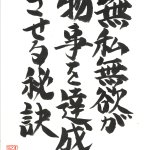 無私無欲が
物事を達成
させる秘訣